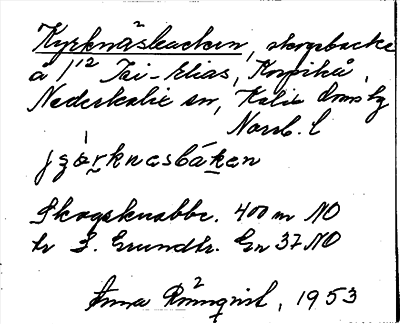 Kyrknäsbacken, skogsbacke
å 1/12 Tai-Elias, Korpikå,
Nederkalix sn, Kalix domsbg
Norrb. l
jʒøʹrknesbáken
Skogsknabbe. 400 m NO
tr S. Grundtr. Gn 37 NO
Anna Rönnqvist, 1953